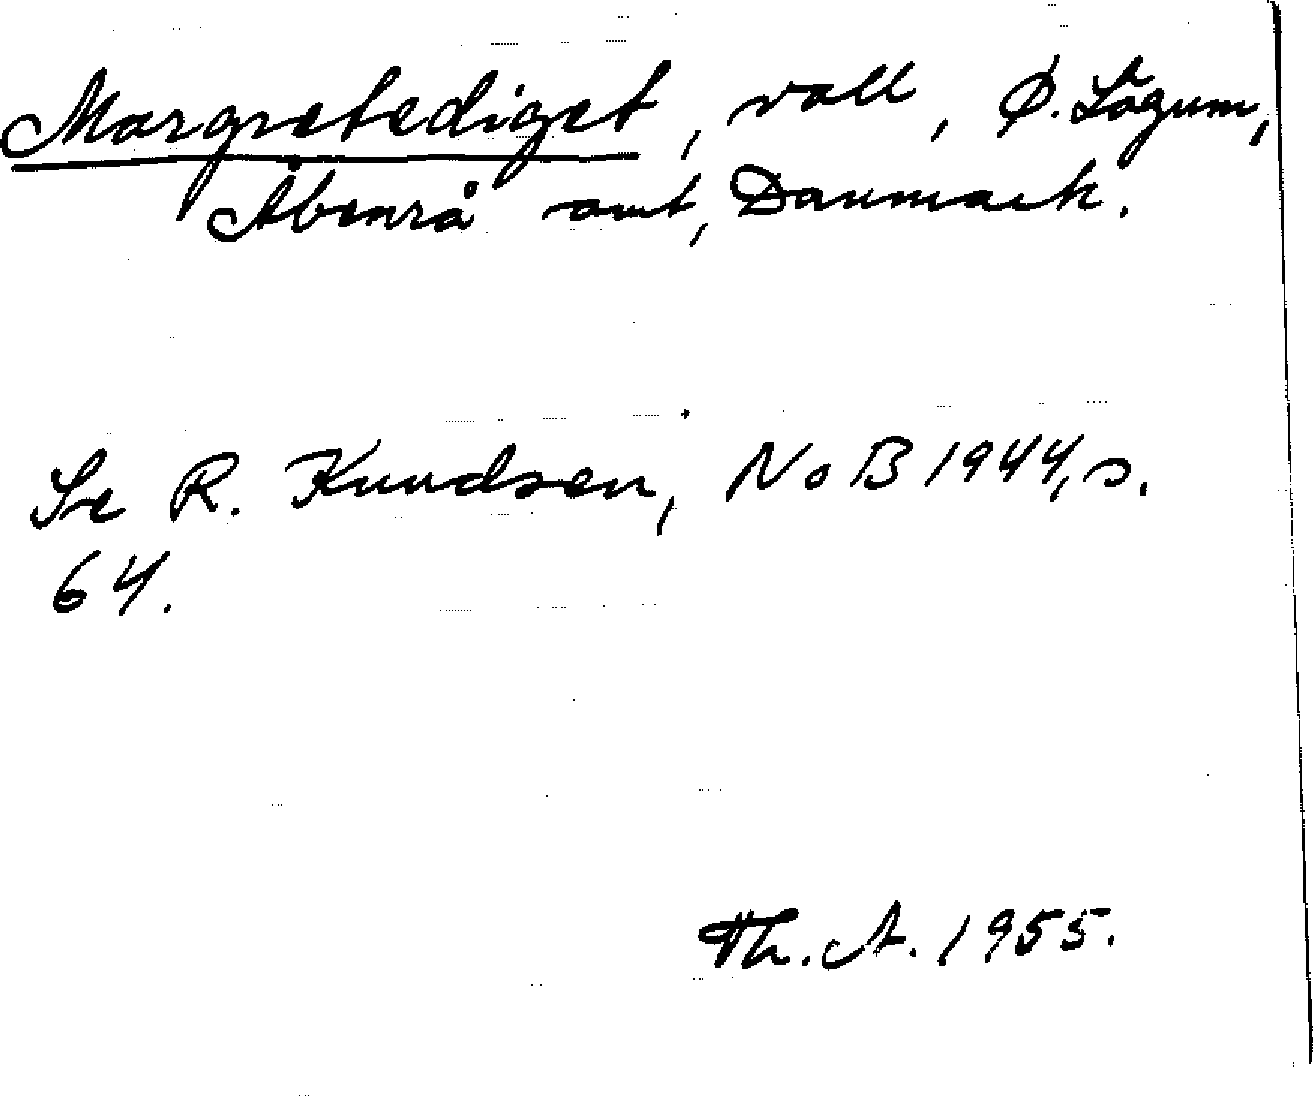 Margretediget, vall, Ø. Lögum,
Åbenrå amt, Danmark.
Se R. Knudsen, NoB 1944, s.
64.
Th. A. 1955.